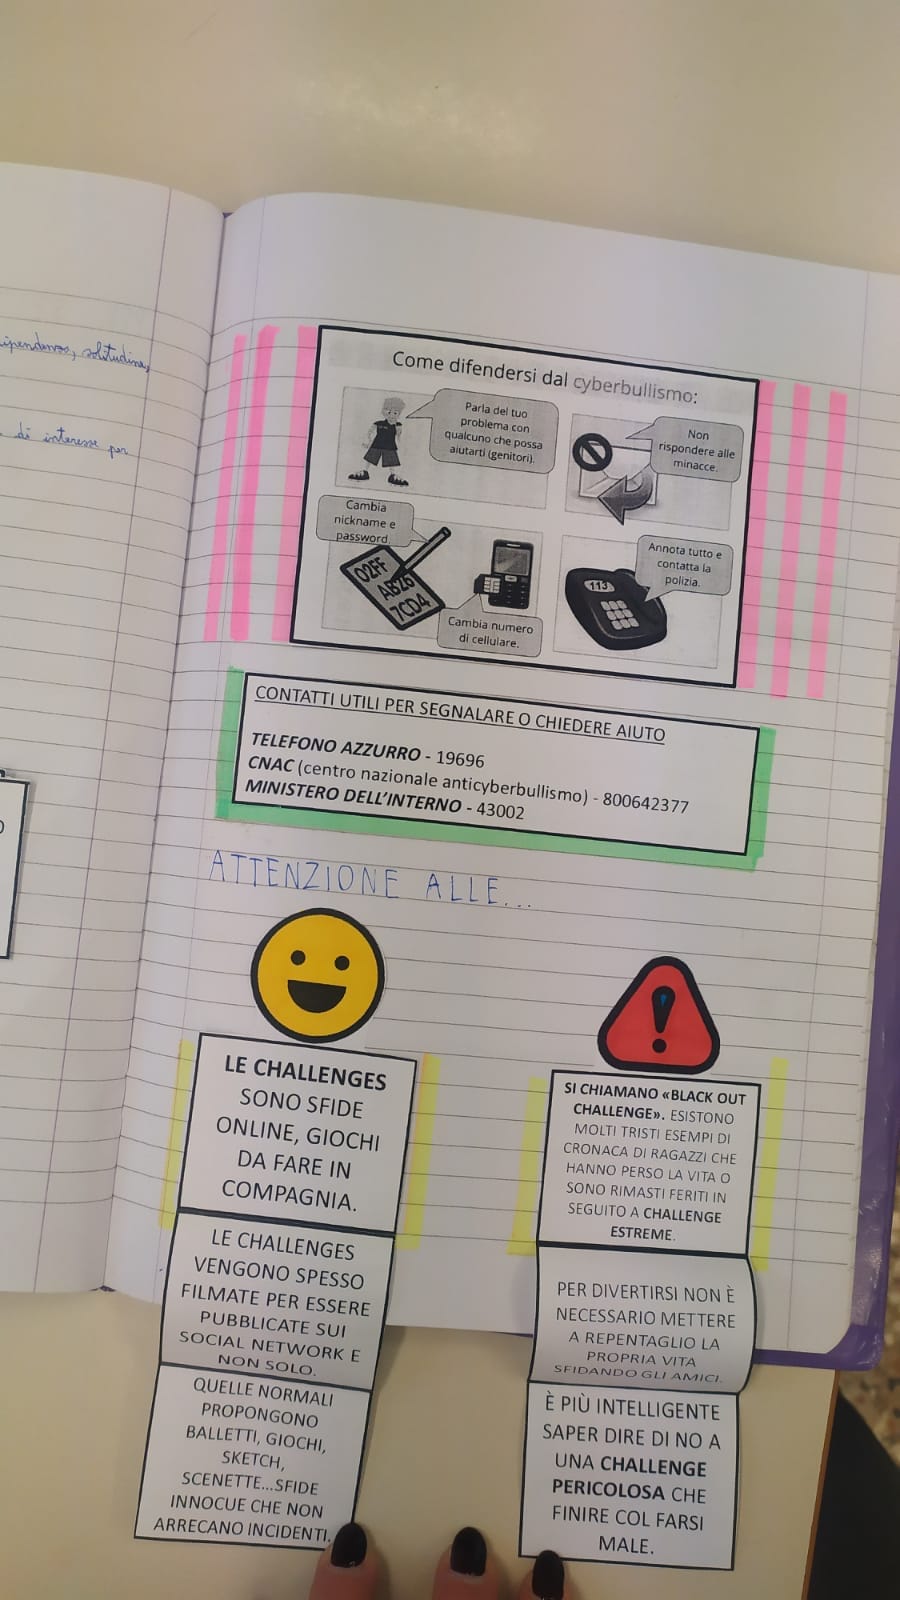 solitudine,
di interesse per
Come difendersi dal cyberbullismo:
Parla del tuo
problema con
qualcuno che possa
aiutarti (genitori).
Non
rispondere alle
minacce.
Cambia
nickname e
password.
02FF
AB26
7CD4
Cambia numero
di cellulare.
Annota tutto e
contatta la
polizia.
113
CONTATTI UTILI PER SEGNALARE O CHIEDERE AIUTO
TELEFONO AZZURRO - 19696
CNAC (centro nazionale anticyberbullismo) - 800642377
MINISTERO DELL'INTERNO - 43002
ATTENZIONE ALLE...
LE CHALLENGES
SONO SFIDE
ONLINE, GIOCHI
DA FARE IN
COMPAGNIA.
LE CHALLENGES
VENGONO SPESSO
FILMATE PER ESSERE
PUBBLICATE SUI
SOCIAL NETWORK E
NON SOLO.
QUELLE NORMALI
PROPONGONO
BALLETTI, GIOCHI,
SKETCH,
SCENETTE...SFIDE
INNOCUE CHE NON
ARRECANO INCIDENTI.
SI CHIAMANO «BLACK OUT
CHALLENGE». ESISTONO
MOLTI TRISTI ESEMPI DI
CRONACA DI RAGAZZI CHE
HANNO PERSO LA VITA O
SONO RIMASTI FERITI IN
SEGUITO A CHALLENGE
ESTREME.
PER DIVERTIRSI NON È
NECESSARIO METTERE
A REPENTAGLIO LA
PROPRIA VITA
SFIDANDO GLI AMICI.
È PIÙ INTELLIGENTE
SAPER DIRE DI NO A
UNA CHALLENGE
PERICOLOSA CHE
FINIRE COL FARSI
MALE.